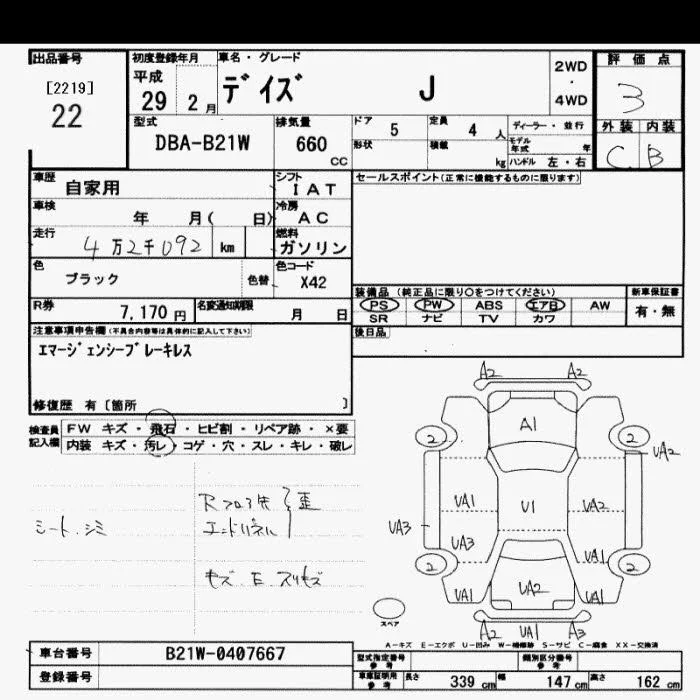 出品番号
[2219]
22
初度登録年月
平成
29 2月
車名・グレード
デイズ J
2WD
・
4WD
評価点
3
外装 内装
C B
型式
DBA-B21W
排気量
660
cc
ドア 5
定員 4 人
ディーラー・並行
形状
積載 kg
モデル年式 年
ハンドル 左・右
車歴 自家用
シフト IAT
セールスポイント(正常に機能するものに限ります)
車検 年 月( 日)
冷房 AC
走行 4万2千092 km
燃料 ガソリン
色 ブラック
色替
色コード X42
装備品 (純正品に限り○をつけてください)
新車保証書
PS PW ABS エアB AW
有・無
SR ナビ TV カワ
R券 7,170円
名変通知期限 月 日
後日品
注意事項申告欄(不具合内容等は具体的に記入して下さい)
エマージェンシーブレーキレス
修復歴 有 [箇所 ]
検査員
記入欄
FW キズ・飛石・ヒビ割・リペア跡・×要
内装 キズ・汚レ・コゲ・穴・スレ・キレ・破レ
シート.シミ
エンドパネル
歪
A2 A2
A1
2 2
UA2
UA1 U1 UA2
UA3
UA3 UA1
2 2
UA1 UA2 UA1
スペア
A2 UA1 A3
A-キズ E-エクボ U-凹み W-補修跡 S-サビ C-腐食 XX-交換済
車台番号 B21W-0407667
登録番号
型式指定番号
参考
類別区分番号
参考
車庫証明用
参考
長さ 339 cm 幅 147 cm 高さ 162 cm